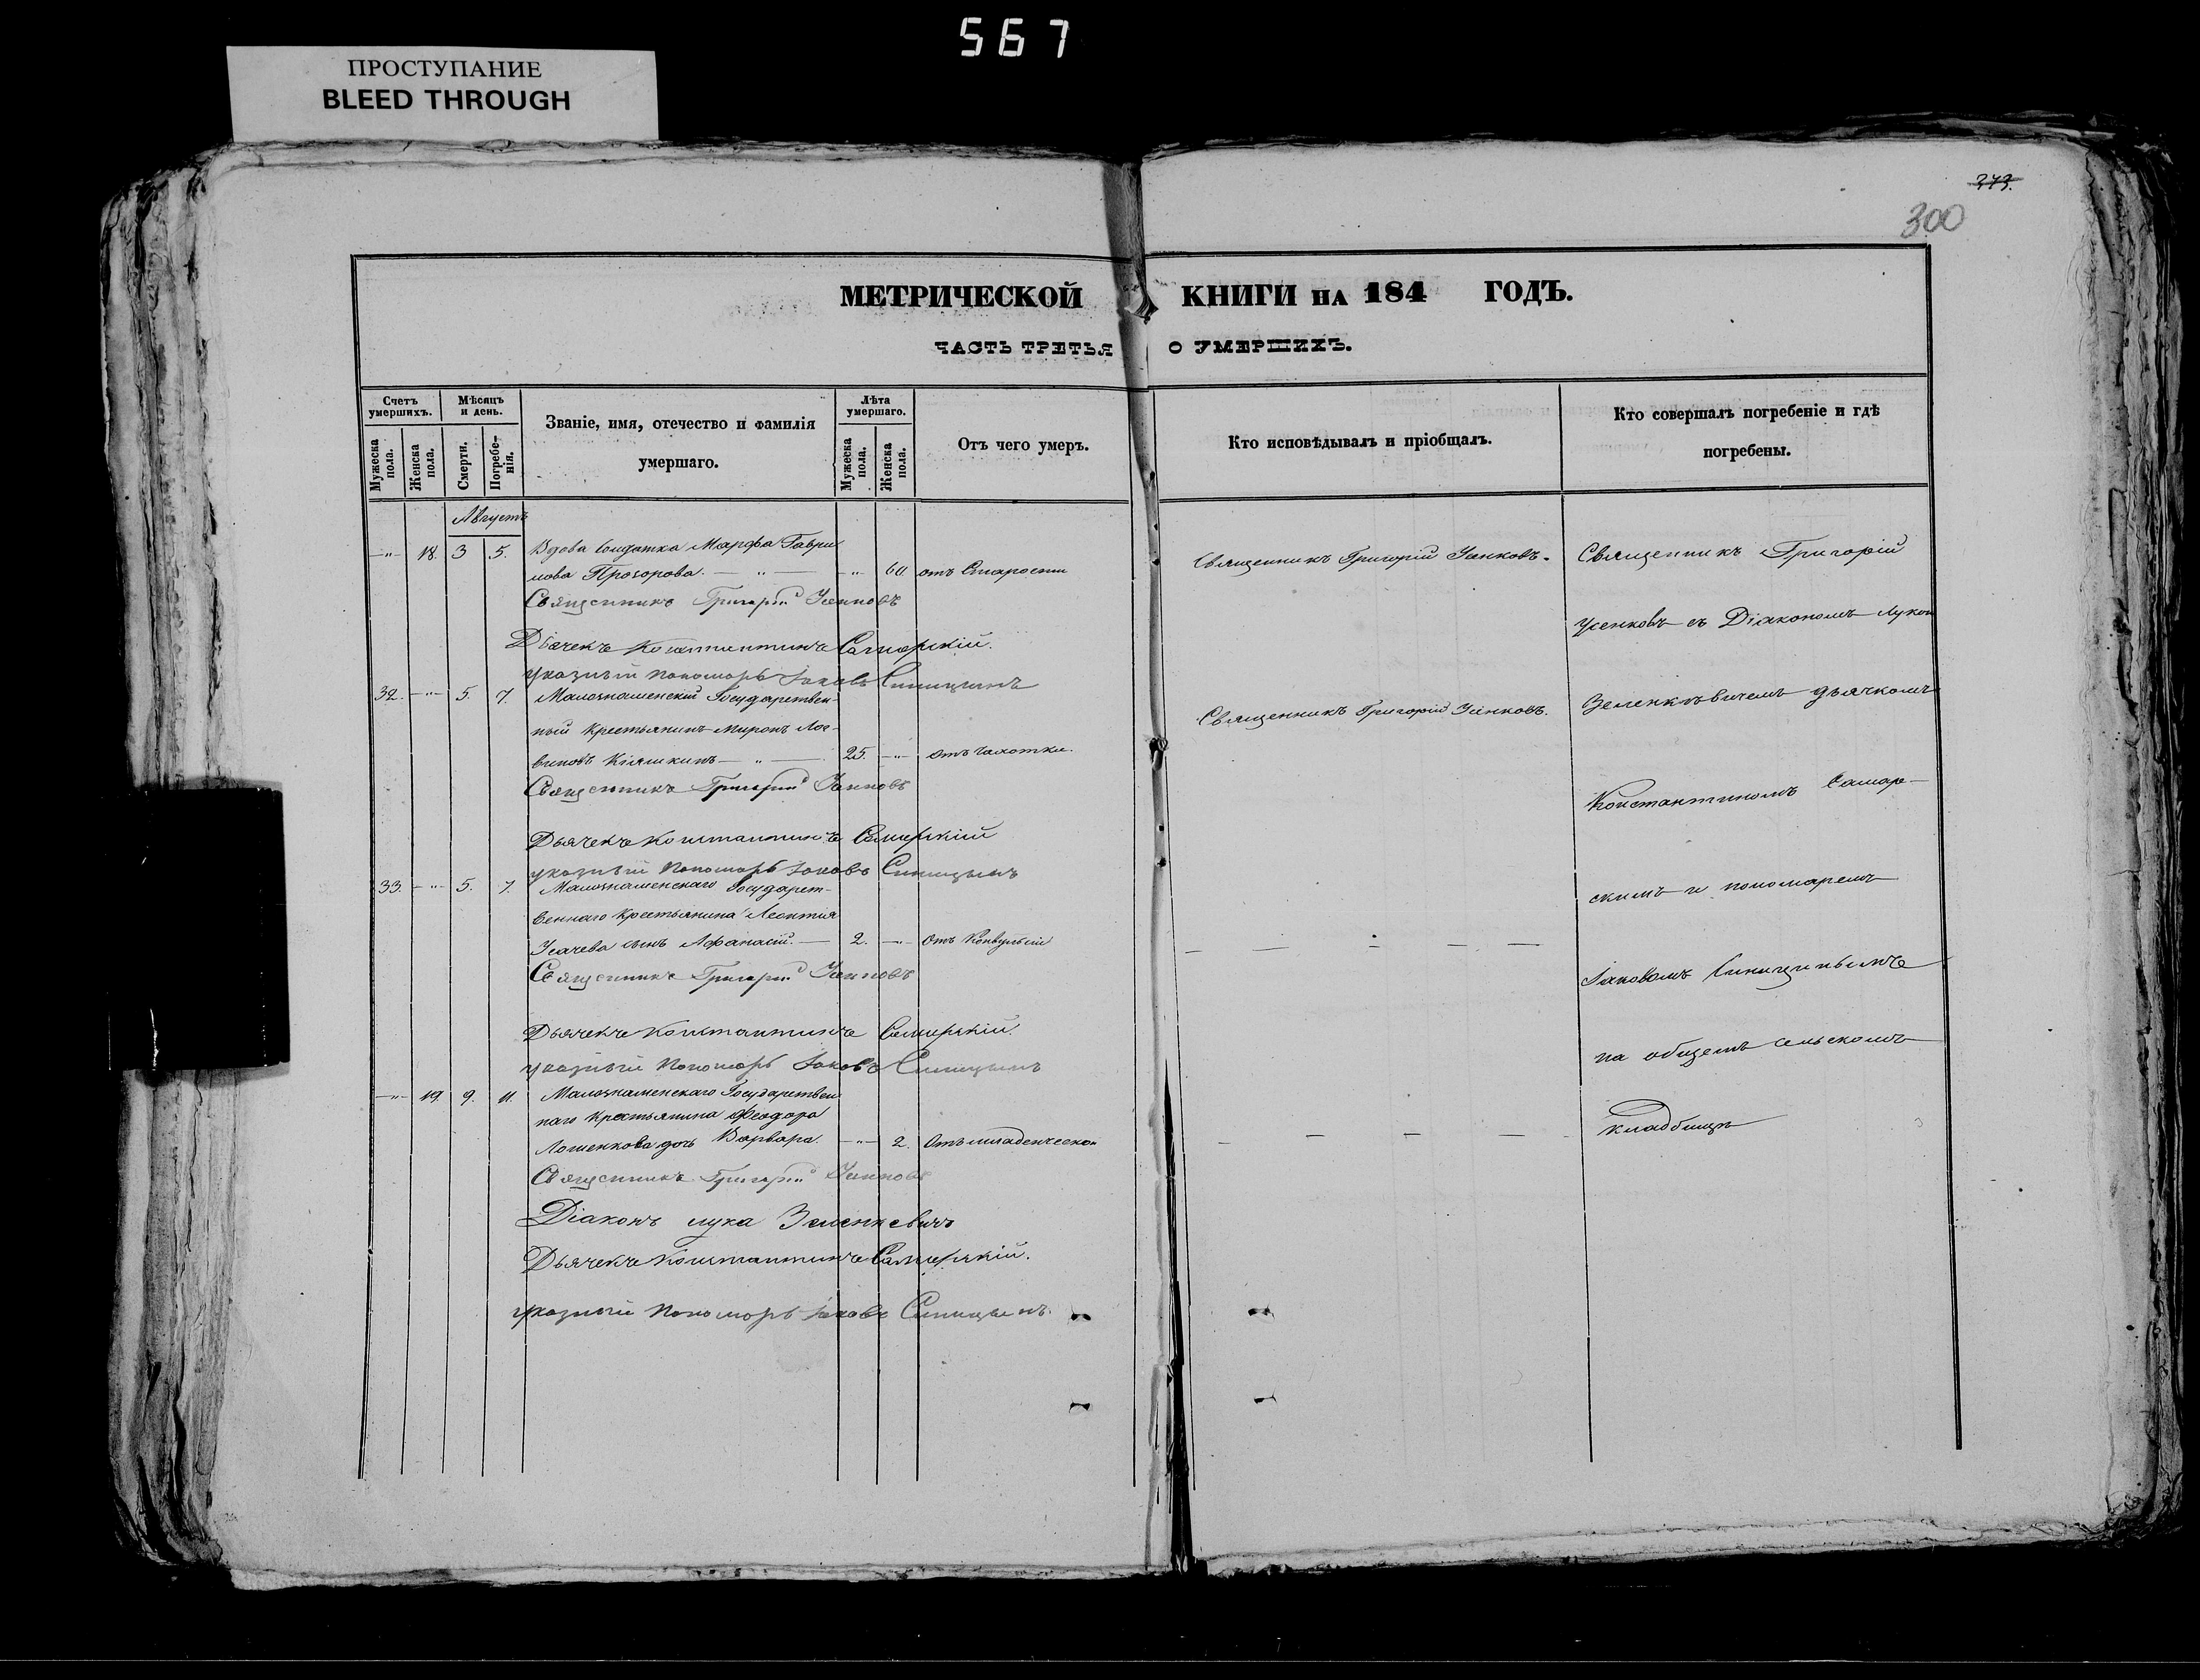 567
ПРОСТУПАНИЕ
BLEED THROUGH
373.
300
МЕТРИЧЕСКОЙ КНИГИ НА 184 ГОДЪ.
ЧАСТЬ ТРЕТЬЯ О УМЕРШИХЪ.
Счетъ умершихъ.
Мѣсяцъ и день.
Званіе, имя, отечество и фамилія умершаго.
Лѣта умершаго.
Отъ чего умеръ.
Кто исповѣдывалъ и пріобщалъ.
Кто совершалъ погребеніе и гдѣ погребены.
Мужеска пола.
Женска пола.
Смерти.
Погребе-нія.
Мужеска пола.
Женска пола.
Августъ
-"- 18. 3 5. Вдова Солдатка Марфа Гаври
лова Прохорова. — " — -"- 60. отъ Старости
Священникъ Григорій Усенковъ.
Священникъ Григорій Усенковъ
Дьячекъ Константинъ Самарскій.
указный пономарь Іаковъ Синицынъ
32. -"- 5. 7. Малознаменскій Государствен-
ный Крестьянинъ Миронъ Лог-
виновъ Кіяшкинъ — " — 25. -"- отъ чахотки.
Священникъ Григорій Усенковъ.
Священникъ Григорій Усенковъ
Дьячекъ Константинъ Самарскій
указный пономарь Іаковъ Синицынъ
33. -"- 5. 7. Малознаменскаго Государст-
веннаго Крестьянина Леонтія
Усачева сынъ Афанасій. — 2. -"- отъ Конвульсіи
Священникъ Григорій Усенковъ
Дьячекъ Константинъ Самарскій.
указный пономарь Іаковъ Синицынъ
-"- 19. 9. 11. Малознаменскаго Государствен
наго Крестьянина Феодора
Лошенкова дочь Варвара. -"- 2. Отъ младенческой
Священникъ Григорій Усенковъ
Діаконъ Лука Зеленкевичъ
Дьячекъ Константинъ Самарскій.
указный пономарь Іаковъ Синицынъ.
Священникъ Григорій
Усенковъ съ Діакономъ Лукою
Зеленкѣвичемъ дьячкомъ
Константиномъ Самар-
скимъ и пономаремъ
Іаковомъ Синицинымъ
на общемъ сельскомъ
кладбищѣ